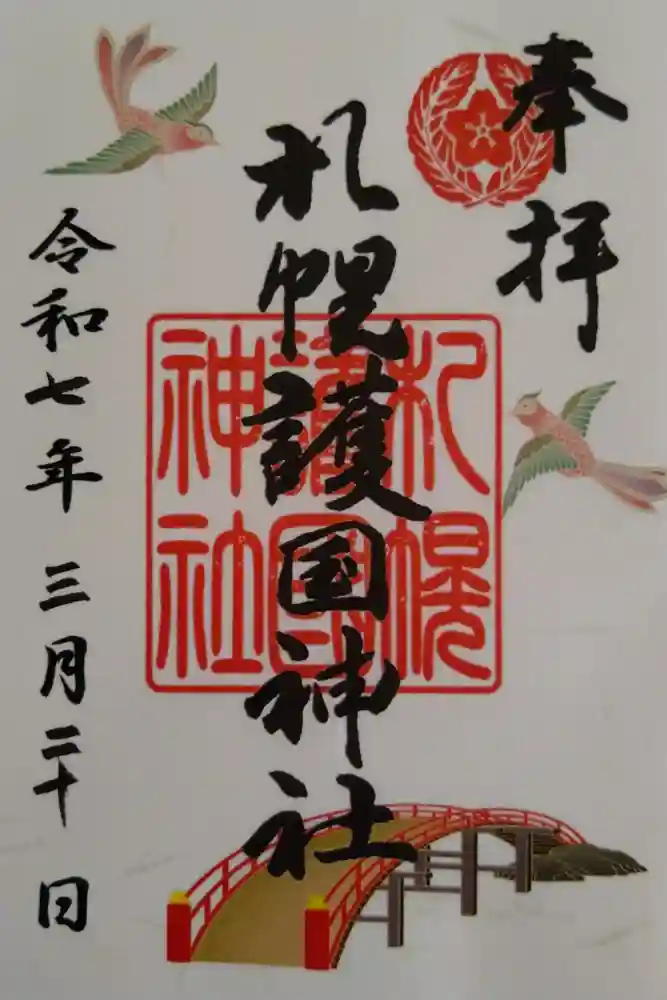 奉拝
札幌護国神社
札幌
護國
神社
令和七年三月二十日